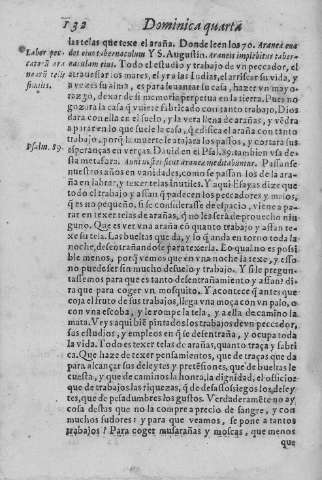 132 Dominica quarta
las telas que texe el araña. Donde leen los 70. Aranea
Y S. Augustin.
Todo el estudio y trabajo de vn peccador, el
atrauessar los mares, el yr a las Indias, el arriscar su vida, y
a vezes su alma, es para leuantar su casa, hazer vn mayo-
razgo, dexar de si memoria perpetua en la tierra. Pues no
gozara la casa q̃ vuiere fabricado con tanto trabajo, Dios
dara con ella en el suelo, y la vera llena de arañas, y vẽdra
a parar en lo que suele la casa, q̃ edifica el araña con tanto
trabajo, porq̃ la muerte le atajara los passos, y cortara sus
esperanças en verças. Dauid en el Psal. 89. tambien vsa de-
Psalm. 89.
sta metafora. Anni nostri sicut aranea meditabuntur. Passanse
nuestros años en vanidades, como se passan los de la ara-
ña en labrar, y texer telas inutiles. Y aqui Esayas dize que
todo el trabajo y affan q̃ padecen los peccadores y malos,
q̃ es no pequeño, si se considerasse de espacio, viene a pa-
rar en texer telas de arañas, q̃ no les ará de prouecho nin-
guno. Que es ver vna araña cõ quanto trabajo y affan te-
xe su tela. Las bueltas que da, y lo q̃ anda en torno toda la
noche, desentrañandose para texerla. Lo qual no es possi-
ble menos, porq̃ vemos que en vna noche la texe, y esso
no puede ser sin mucho desuelo y trabajo. Y si le pregun-
tassemos para que es tanto desentrañamiento y affan? di
ria que para coger vn mosquito. Y acontece q̃ antes que
coja el fruto de sus trabajos, llega vna moça con vn palo, o
con vna escoba, y le rompe la tela, y a ella de camino la
mata. Veys aqui biẽ pintados los trabajos de vn peccador,
sus estudios, y empleos en q̃ se desentraña, y ocupa toda
la vida. Todo es texer telas de arañas, quanto traça y fabri
ca. Que haze de texer pensamientos, que de traças que da
para alcançar sus deleytes y pretẽsiones, que de bueltas le
cuesta, y que de caminos la honra, la dignidad, el officio:
que de trabajos las riquezas, q̃ de desassossiegos los deley-
tes, que de pesadumbres los gustos. Verdaderamẽte no ay
cosa destas que no la compre a precio de sangre, y con
muchos sudores: y para que veamos, se pone a tantos
trabajos? Para coger musarañas y moscas, que menos
que